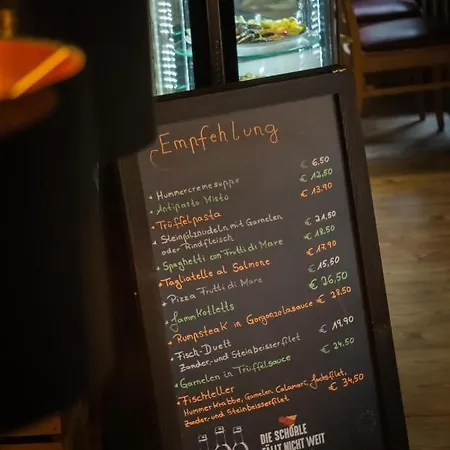 Empfehlung
Hummercremesuppe € 6,50
Antipasto Misto € 12,50
Trüffelpasta € 13,90
Steinpilznudeln mit Garnelen € 21,50
oder Rindfleisch
Spaghetti con Frutti di Mare € 18,50
Tagliatelle al Salmone € 17,90
Pizza Frutti di Mare € 15,50
Lammkotletts € 26,50
Rumpsteak in Gorgonzolasauce € 28,50
Fisch-Duett € 19,90
Zander- und Steinbeisserfilet
Garnelen in Trüffelsauce € 24,50
Fischteller € 34,50
Hummerkrabbe, Garnelen, Calamari, Lachsfilet,
Zander- und Steinbeisserfilet
DIE SCHORLE
FÄLLT NICHT WEIT